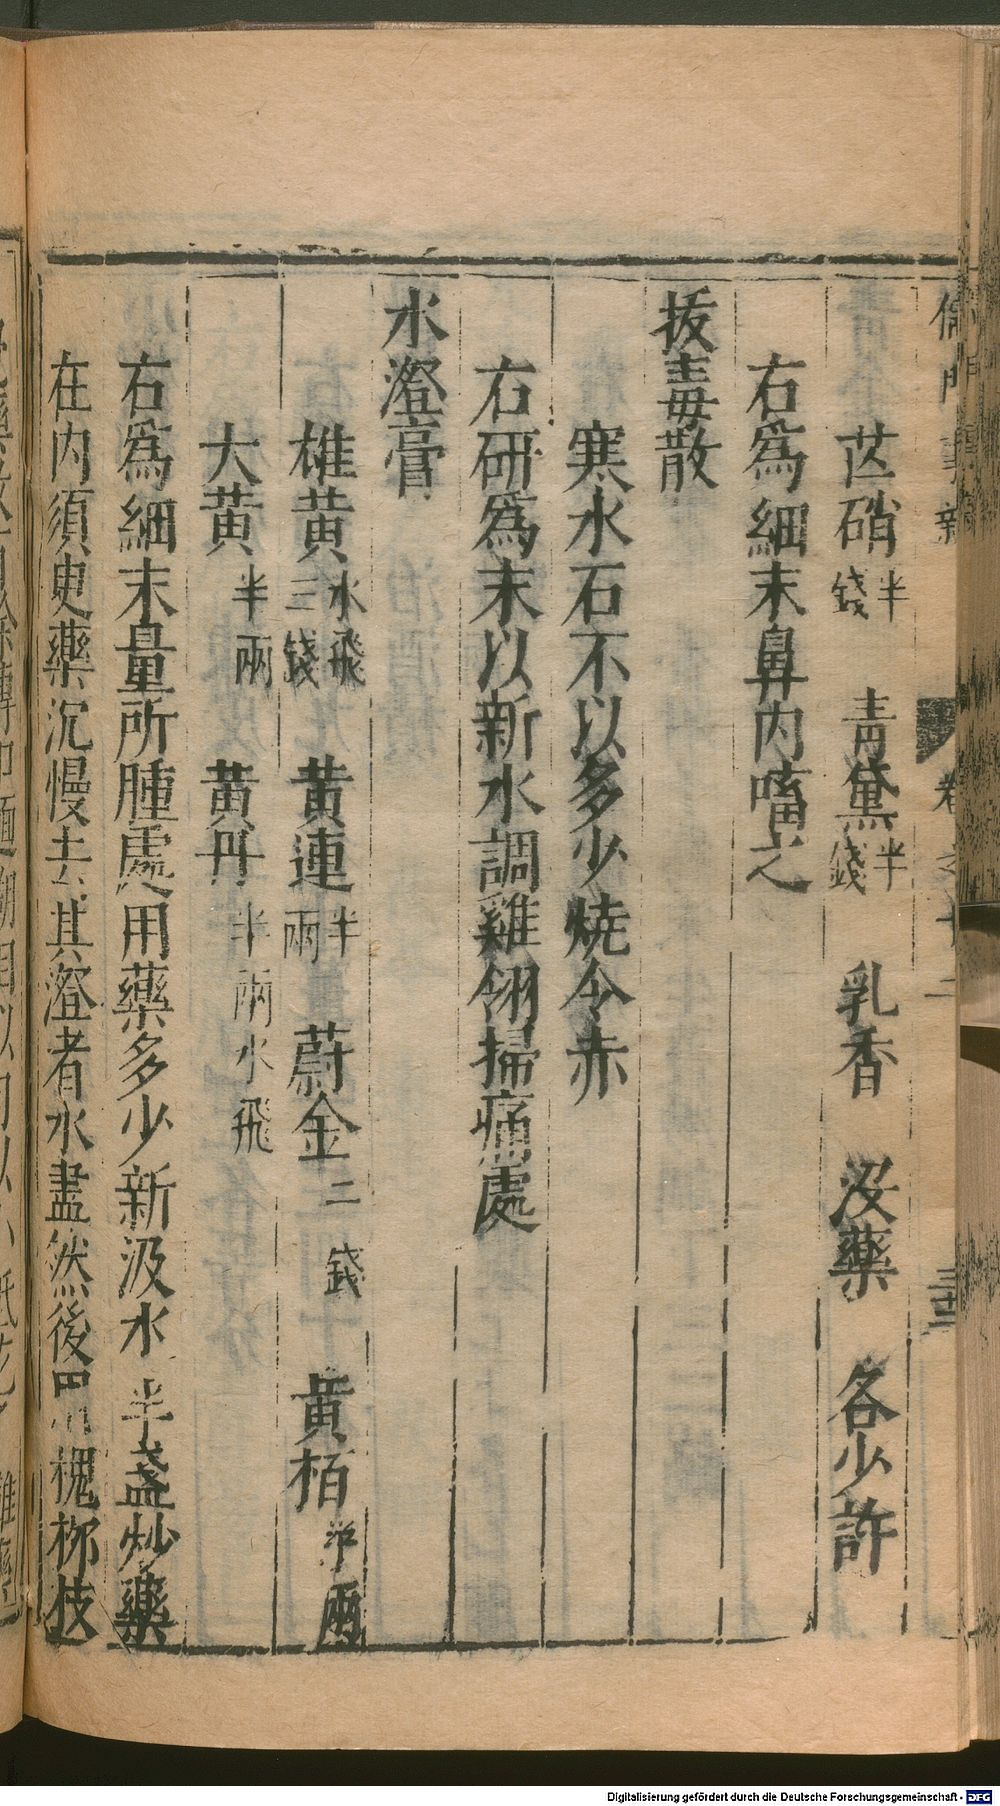 儒門事親
卷之十二
三十三
芒硝半錢　青黛半錢　乳香　沒藥　各少許
右爲細末鼻內㗜之
拔毒散
寒水石不以多少燒令赤
右研爲末以新水調雞翎掃痛處
水澄膏
雄黃水飛三錢　黃連半兩　蔚金二錢　黃栢半兩
大黃半兩　黃丹半兩水飛
右爲細末量所腫處用藥多少新汲水半盞炒藥
在內須臾藥沉慢去其澄者水盡然後用槐柳枝
Digitalisierung gefördert durch die Deutsche Forschungsgemeinschaft - DFG